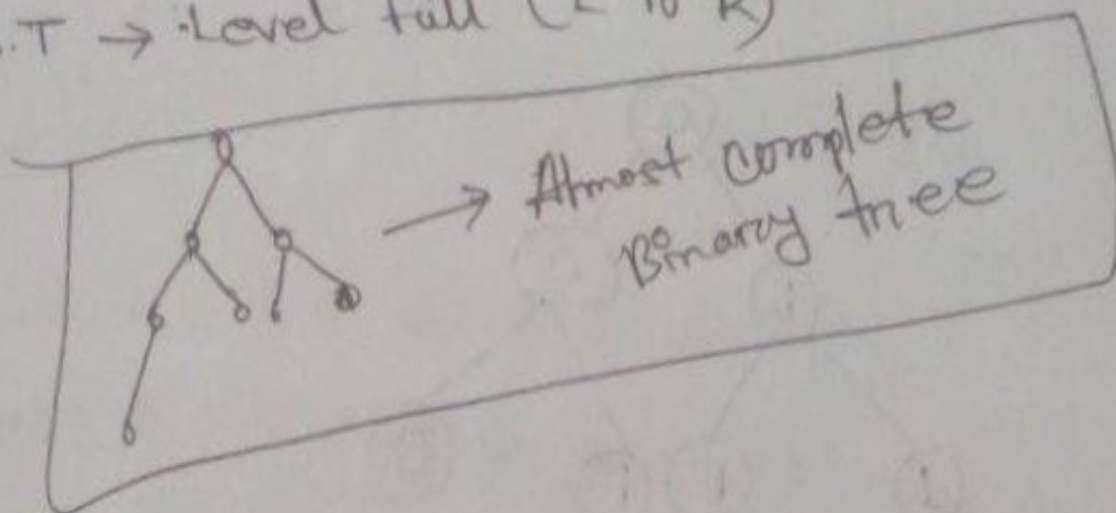 .T → Level full (L to R)
→ Almost complete
Binary tree